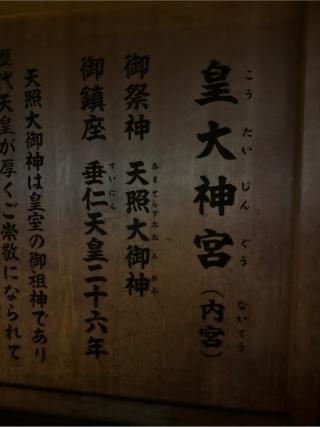 皇大神宮（内宮）
こうたいじんぐう　ないくう
御祭神　天照大御神
あまてらすおおみかみ
御鎮座　垂仁天皇二十六年
すいにん
天照大御神は皇室の御祖神であり
歴代天皇が厚くご崇敬になられて